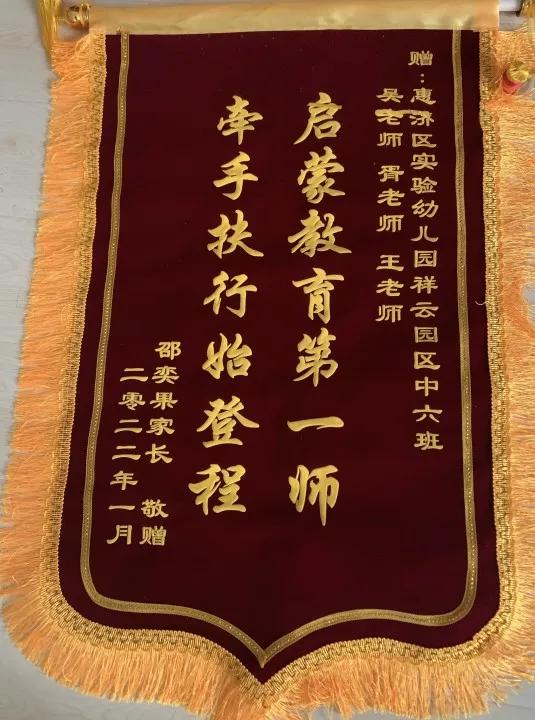 赠：惠济区实验幼儿园祥云园区中六班
吴老师 胥老师 王老师
启蒙教育第一师
牵手扶行始登程
邵奕果家长 敬赠
二零二二年一月